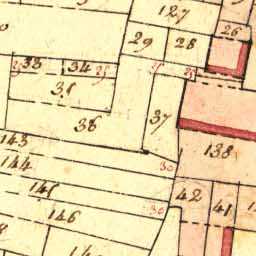 127
26
29 28
33 34
31
36
37
138
143
144
30
145
42 41
146
30